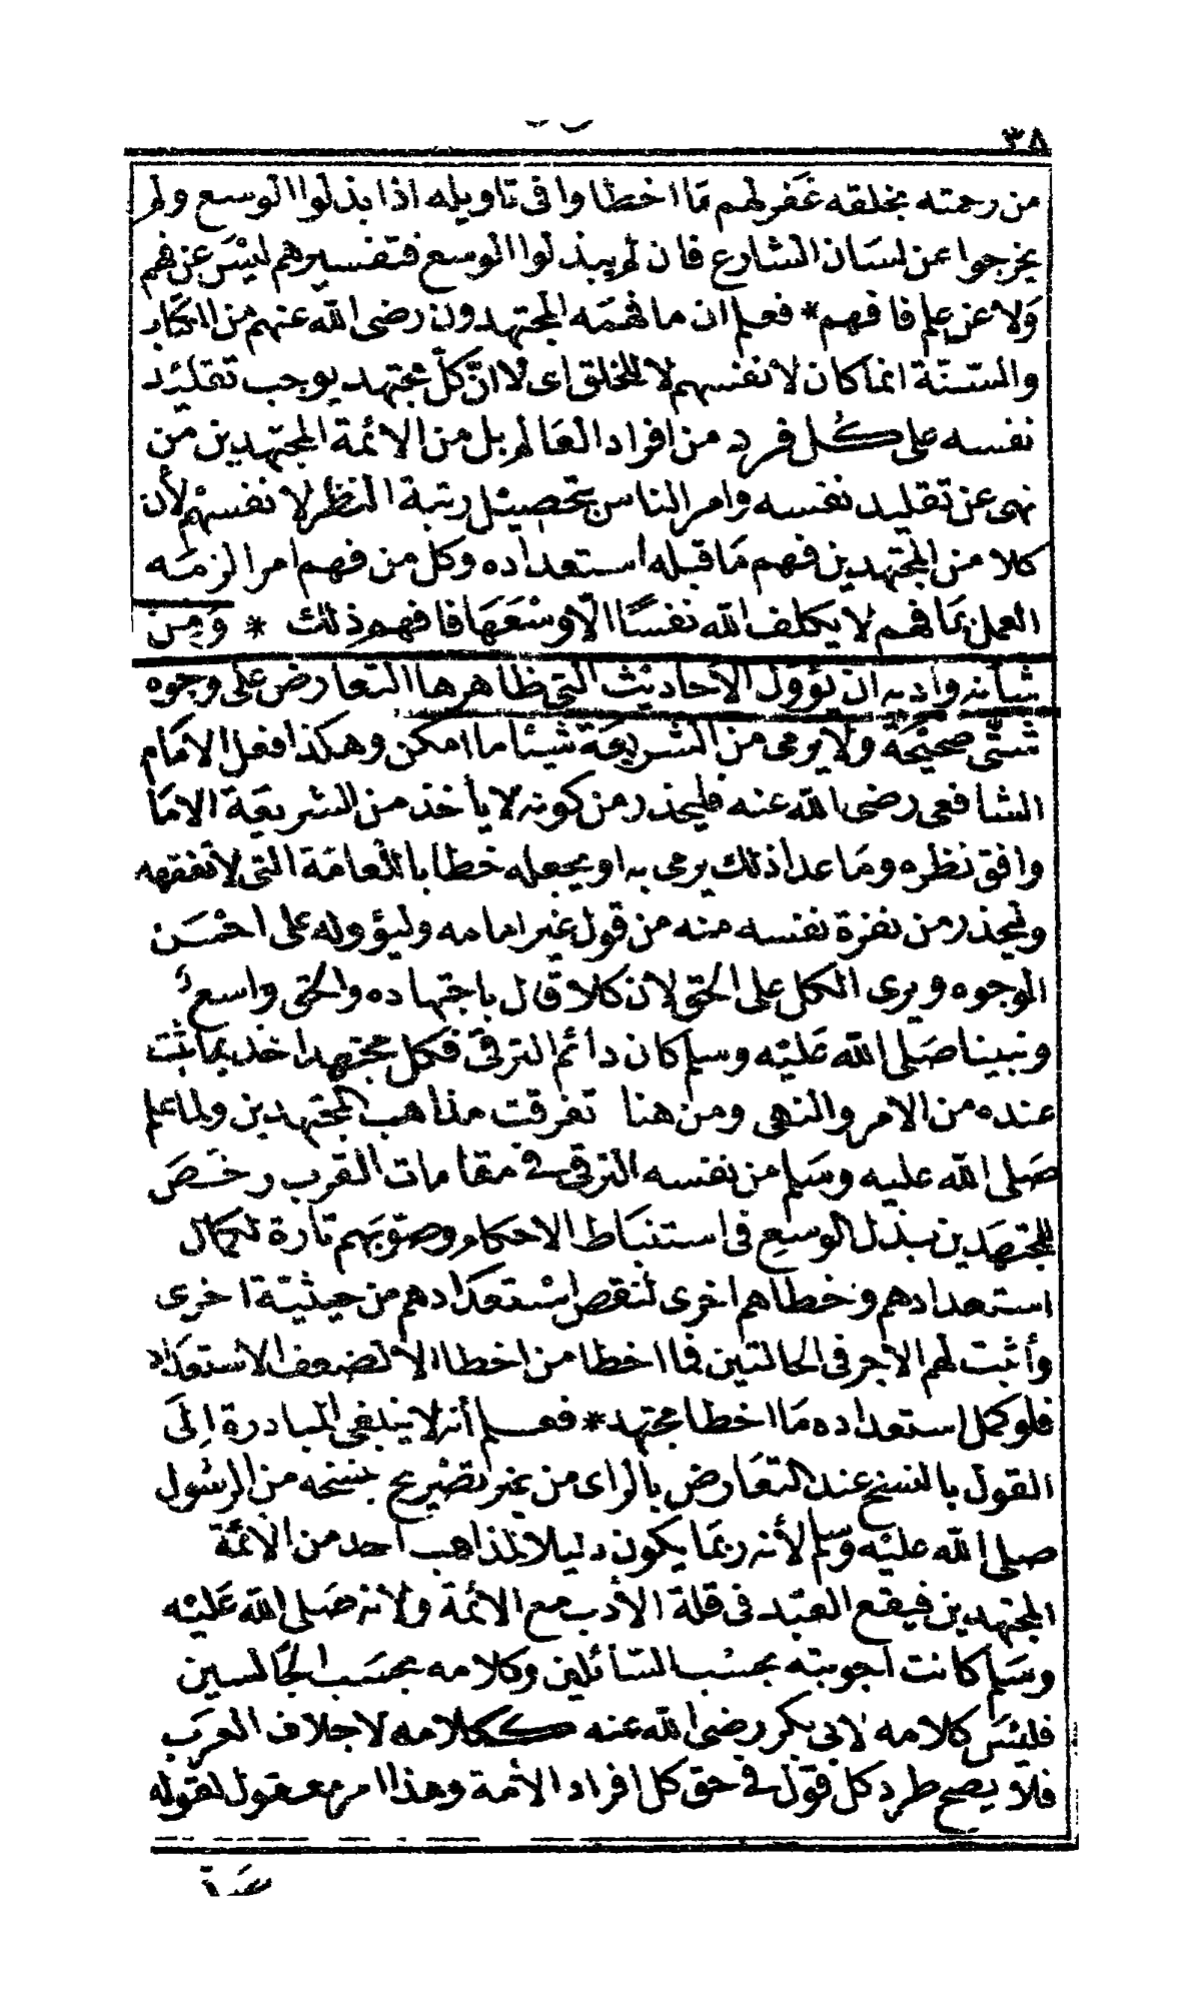 ٣٨
من رحمته بخلقه غفر لهم مما اخطاوا فى تاويله اذا بذلوا الوسع ولم
يخرجوا عن لسان الشارع فان لم يبذلوا الوسع فتفسيرهم ليس عن فهم
ولا عن علم فافهم * فعلم ان ما فهمه المجتهدون رضى الله عنهم من الكتاب
والسنة انما كان لانفسهم لا للخلق اى لا ان كل مجتهد يوجب تقليد
نفسه على كل فرد من افراد العالم بل من الائمة المجتهدين من
نهى عن تقليد نفسه وامر الناس بتحصيل رتبة النظر لانفسهم لأن
كلا من المجتهدين فهم ما قبله استعداده وكل من فهم امرا لزمه
العمل بما فهم لا يكلف الله نفسا الا وسعها فافهم ذلك * ومن
شأنه وادبه ان يؤول الاحاديث التى ظاهرها التعارض على وجوه
شتى صحيحة ولا يرمى من الشريعة شيئا ما امكن وهكذا فعل الامام
الشافعى رضى الله عنه فليحذر من كونه لا يأخذ من الشريعة الا ما
وافق نظره وما عدا ذلك يرمى به او يجعله خطابا للعامة التى لا تفقهه
وليحذر من نفرة نفسه منه من قول غير امامه وليؤوله على احسن
الوجوه ويرى الكل على الحق لان كلا قال باجتهاده والحق واسع
ونبينا صلى الله عليه وسلم كان دائم الترقى فكل مجتهد اخذ بما ثبت
عنده من الامر والنهى ومن هنا تفرقت مذاهب المجتهدين ولما علم
صلى الله عليه وسلم من نفسه الترقى فى مقامات القرب رخص
للمجتهدين ببذل الوسع فى استنباط الاحكام وصوبهم تارة لكمال
استعدادهم وخطاهم اخرى لنقص استعدادهم من حيثية اخرى
وأثبت لهم الاجر فى الحالتين فما اخطا من اخطا الا لضعف الاستعداد
فلو كمل استعداده ما اخطا مجتهد * فعلم أنه لا ينبغى المبادرة الى
القول بالنسخ عند التعارض بالراى من غير تصريح بنسخه من الرسول
صلى الله عليه وسلم لأنه ربما يكون دليلا لمذاهب احد من الائمة
المجتهدين فيقع العبد فى قلة الأدب مع الائمة ولانه صلى الله عليه
وسلم كانت اجوبته بحسب السائلين وكلامه بحسب الجالسين
فليس كلامه لابى بكر رضى الله عنه ككلامه لاجلاف العرب
فلا يصح طرد كل قول فى حق كل افراد الأمة وهذا امر معقول لقوله